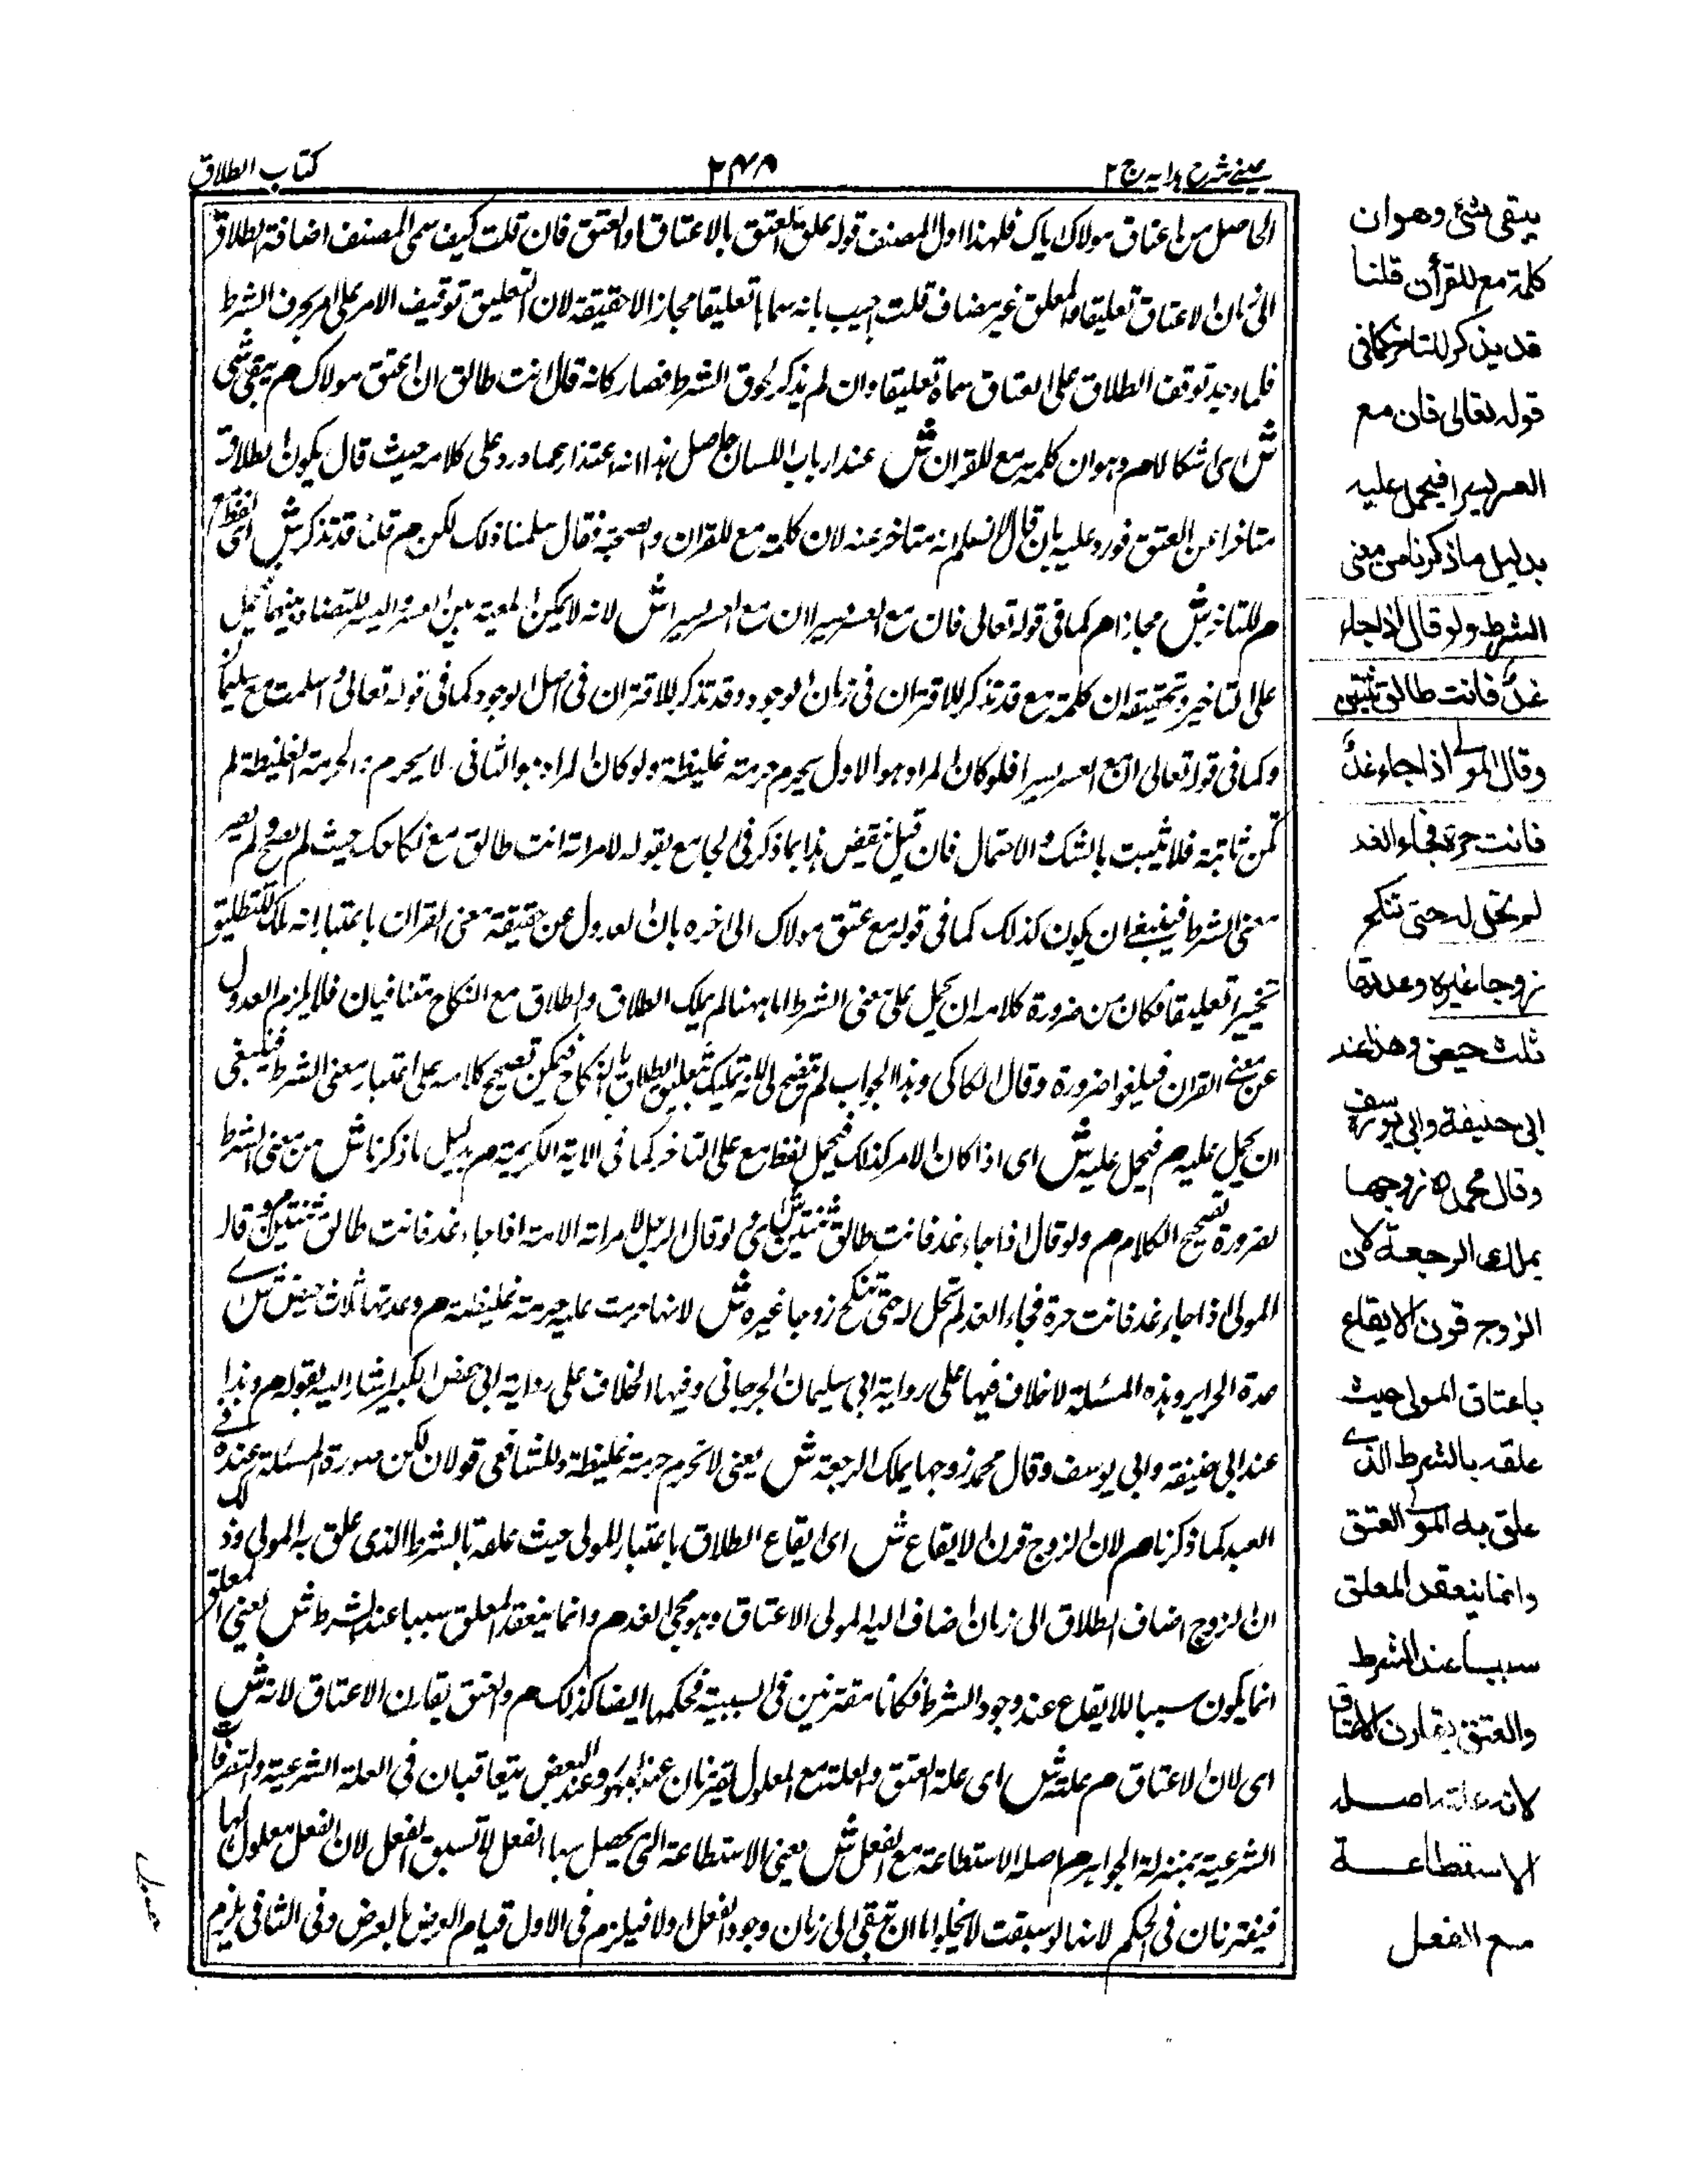 عینی شرح ہدایہ ج ۲
۲۴۸
کتاب الطلاق
الحاصل من اعتاق مولاك اياك فلهذا اول المصنف قوله علق العتق بالاعتاق او العتق فان قلت كيف سمى المصنف اضافة الطلاق
الى زمان الاعتاق تعليقا والمعلق غير مضاف قلت اجيب بانه سماها تعليقا مجازا لا حقيقة لان التعليق توقيف الامر على امر بحرف الشرط
فلما وجد توقف الطلاق على العتاق سماه تعليقا وان لم يذكر لحوق الشرط فصار كانه قال انت طالق ان اعتق مولاك م يبقى شى
ش اى اشكال م وهو ان كلمة مع للقران ش عند ارباب اللسان حاصل هذا انه اعتذار عما ورد على كلامه حيث قال يكون الطلاق
متاخرا عن العتق فورد عليه بان قال لا نسلم انه متاخر عنه لان كلمة مع للقران والصحبة فقال سلمنا ذلك لكن م قلنا قد تذكر ش اى لفظة مع
م للتاخر ش مجازا م كما فى قوله تعالى فان مع العسر يسرا ان مع العسر يسرا ش لانه لا يمكن المعية بين العسر واليسر للتضاد بينهما فحمل
على التاخير وتحقيقه ان كلمة مع قد تذكر للاقتران فى زمان الوجود وقد تذكر للاقتران فى اصل الوجود كما فى قوله تعالى واسلمت مع سليمان
وكما فى قوله تعالى ان مع العسر يسرا فلو كان المراد هو الاول يحرم حرمة غليظة ولو كان المراد هو الثانى لا يحرم والحرمة الغليظة لم
تكن ثابتة فلا تثبت بالشك والاحتمال فان قيل نقيض هذا بما ذكر فى الجامع بقوله لامراته انت طالق مع نكاحك حيث لم يصح ولم يصر
معنى الشرط فينبغى ان يكون كذلك كما فى قوله مع عتق مولاك الى اخره بان العدول عن حقيقة معنى القران باعتبار انه ملك التطليق
تخييرا تعليقا فكان من ضرورة كلامه ان يحمل على معنى الشرط اما ههنا لم يملك الطلاق والطلاق مع النكاح متنافيان فلا يلزم العدول
عن معنى القران فيلغو ضرورة وقال الكاكى وهذا الجواب لم يتضح لى لانه تمليك تعليق الطلاق بالنكاح فيمكن تصحيح كلامه على اعتبار معنى الشرط فينبغى
ان يحمل عليه م فيحمل عليه ش اى اذا كان الامر كذلك فيحمل لفظ مع على التاخر كما فى الاية الكريمة م بدليل ما ذكرنا ش من معنى الشرط
لضرورة تصحيح الكلام م ولو قال اذا جاء غد فانت طالق ثنتين ش اى لو قال الرجل لامراته الامة اذا جاء غد فانت طالق ثنتين م وقال
المولى اذا جاء غد فانت حرة فجاء الغد لم تحل له حتى تنكح زوجا غيره ش لانها حرمت عليه حرمة غليظة م وعدتها ثلاث حيض ش
عدة الحراير وهذه المسئلة لا خلاف فيها على رواية ابى سليمان الجرجانى وفيها الخلاف على رواية ابى حفص الكبير اشار اليه بقوله م وهذا
عند ابى حنيفة وابى يوسف وقال محمد زوجها يملك الرجعة ش يعنى لا تحرم حرمة غليظة وللشافعى قولان لكن صورة المسئلة عنده فى
العبد كما ذكرنا م لان الزوج قرن الايقاع ش اى ايقاع الطلاق باعتبار المولى حيث علقه بالشرط الذى علق به المولى وذلك
ان الزوج اضاف الطلاق الى زمان اضاف اليه المولى الاعتاق وهو مجئ الغد م وانما ينعقد المعلق سببا عند الشرط ش يعنى المعلق
انما يكون سببا للايقاع عند وجود الشرط فكانا مقترنين فى السببية فحكمها ايضا كذلك م والعتق يقارن الاعتاق لانه ش
اى لان الاعتاق م علته ش اى علة العتق والعلة مع المعلول يقترنان عند الجمهور وعند البعض يتعاقبان فى العلة الشرعية والتصرفات
الشرعية بمنزلة الجواهر م اصله الاستطاعة مع الفعل ش يعنى الاستطاعة التى يحصل بها الفعل لا تسبق الفعل لان الفعل معلول لها
فيقترنان فى الحكم لانها لو سبقت لا يخلو اما ان تبقى الى زمان وجود الفعل او لا فيلزم فى الاول قيام العرض بالعرض وفى الثانى يلزم
يبقى شئ وهو ان
كلمة مع للقرأن قلنا
قد يذكر للتاخر كما فى
قوله تعالى فان مع
العسر يسرا فيحمل عليه
بدليل ما ذكرنا من معنى
الشرط ولو قال اذا جاء
غدٌ فانت طالق ثنتين
وقال المولى اذا جاء غدٌ
فانت حرة فجاء الغد
لم تحل له حتى تنكح
زوجا غيره وعدتها
ثلث حيض وهذا عند
ابى حنيفة وابى يوسف
وقال محمد زوجها
يملك الرجعة لان
الزوج قرن الايقاع
باعتاق المولى حيث
علقه بالشرط الذى
علق به المولى العتق
وانما ينعقد المعلق
سببا عند الشرط
والعتق يقارن الاعتاق
لانه علته اصله
الاستطاعة
مع الفعل